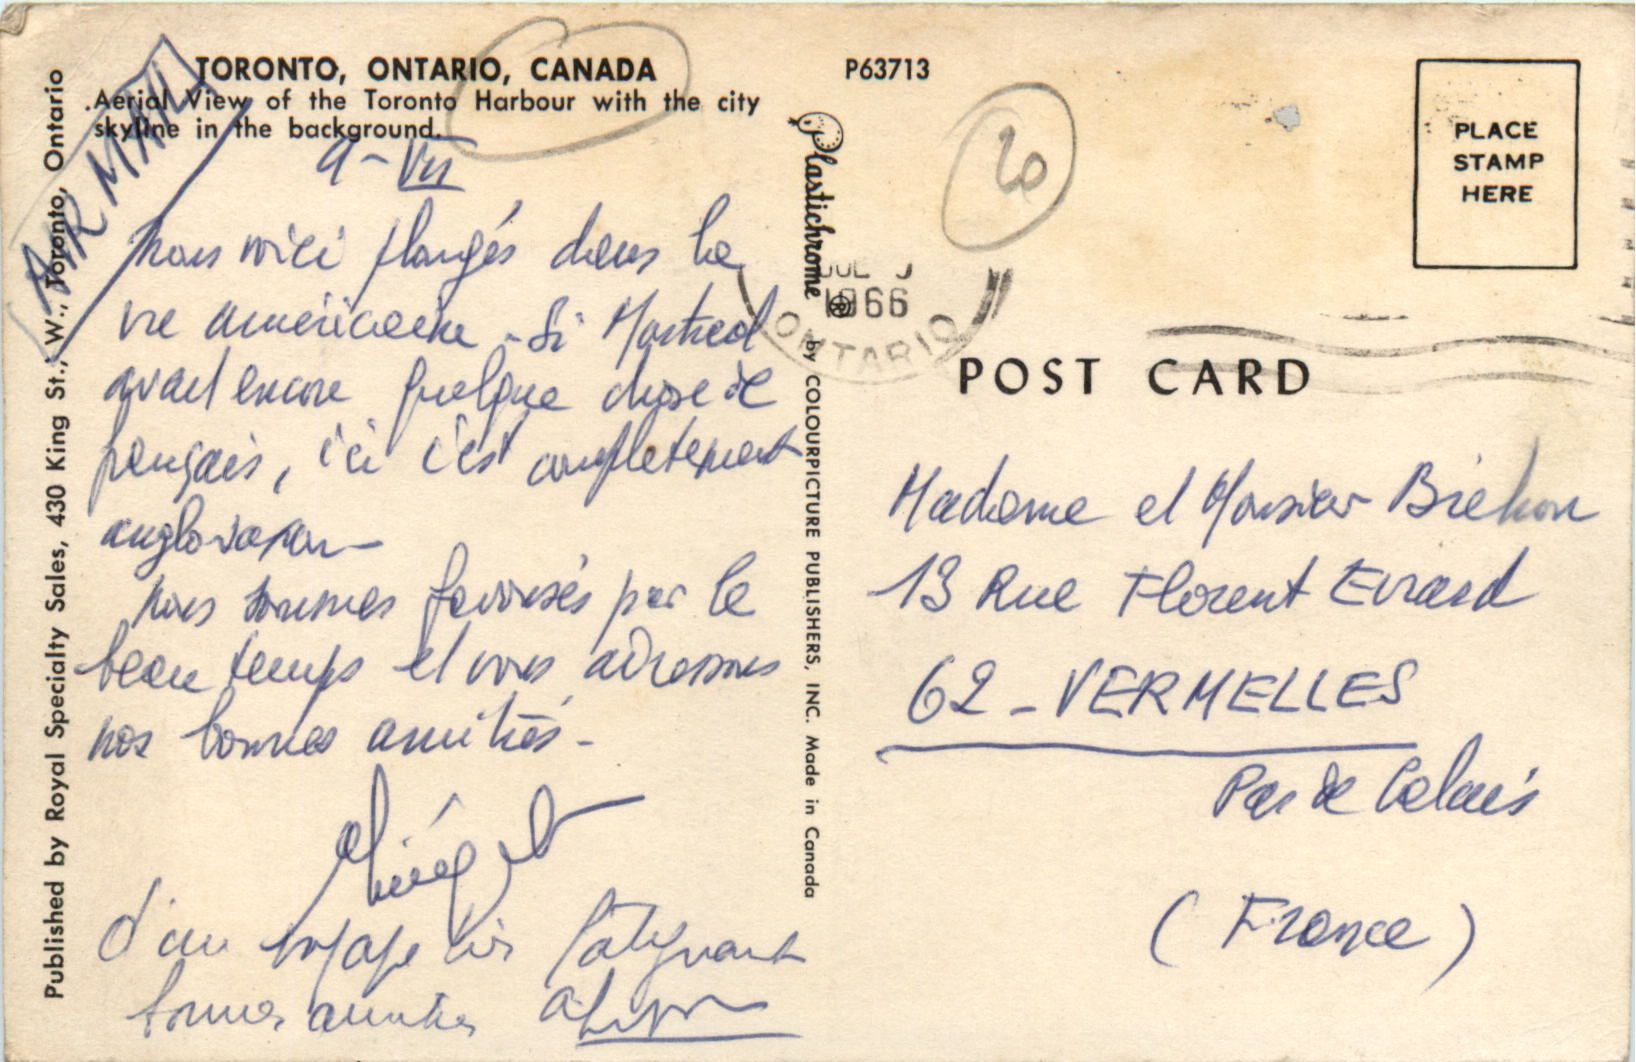 TORONTO, ONTARIO, CANADA
Aerial View of the Toronto Harbour with the city
skyline in the background.
AIR MAIL
9-VII
Nous voici plongés dans la
vie américaine - Si Montreal
avait encore quelque chose de
français, ici c'est complètement
anglosaxon -
Nous sommes favorisés par le
beau temps et vous adressons
nos bonnes amitiés -
d'un voyage très fatiguant
bonnes amitiés
Published by Royal Specialty Sales, 430 King St., W., Toronto, Ontario
Plastichrome ® by COLOURPICTURE PUBLISHERS, INC. Made in Canada
P63713
20
PLACE
STAMP
HERE
1966
ONTARIO
POST CARD
Madame et Monsieur Biehon
13 Rue Florent Evrard
62 - VERMELLES
Pas de Calais
(France)